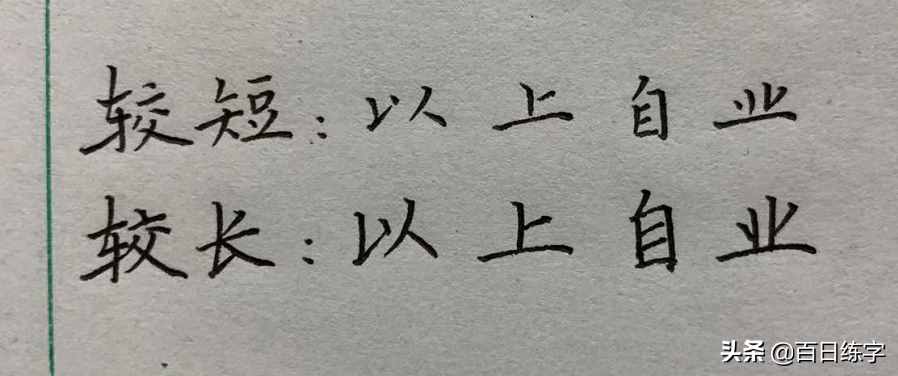 较短：以上自业
较长：以上自业
头条 @百日练字